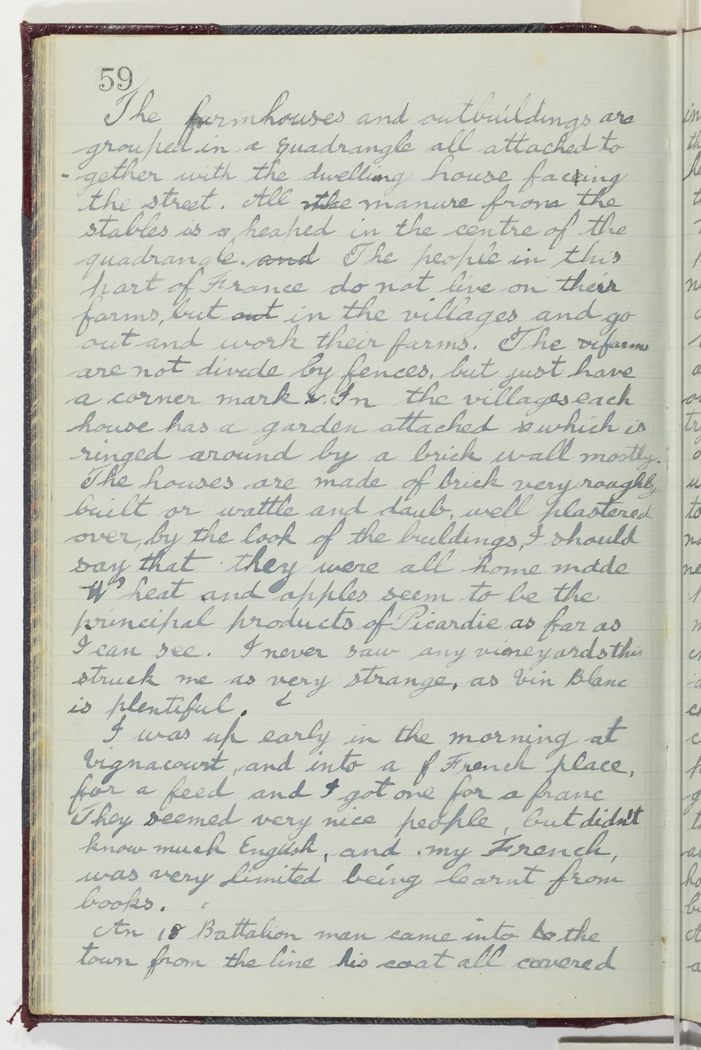 59
The farmhouses and outbuildings are
grouped in a quadrangle all attached to
-gether with the dwelling house facing
the street. All the manure from the
stables is heaped in the centre of the
quadrangle. and The people in this
part of France do not live on their
farms, but out in the villages and go
out and work their farms. The farms
are not divide by fences, but just have
a corner mark. In the villages each
house has a garden attached & which is
ringed around by a brick wall mostly.
The houses are made of brick very roughly
built or wattle and daub, well plastered
over, by the look of the buildings, I should
say that they were all home made
Wheat and apples seem to be the
principal products of Picardie as far as
I can see. I never saw any vineyards this
struck me as very strange, as Vin Blanc
is plentiful.
I was up early in the morning at
Vignacourt, and into a French place,
for a feed and I got one for a franc
They seemed very nice people, but didn't
know much English, and my French,
was very limited being learnt from
books.
An 18 Battalion man came into the
town from the line his coat all covered